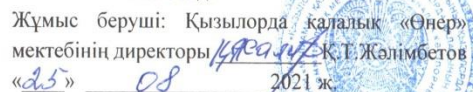 Жұмыс беруші: Қызылорда қалалық «Өнер»
мектебінің директоры Қ.Т.Жәлімбетов
«25» 08 2021 ж.